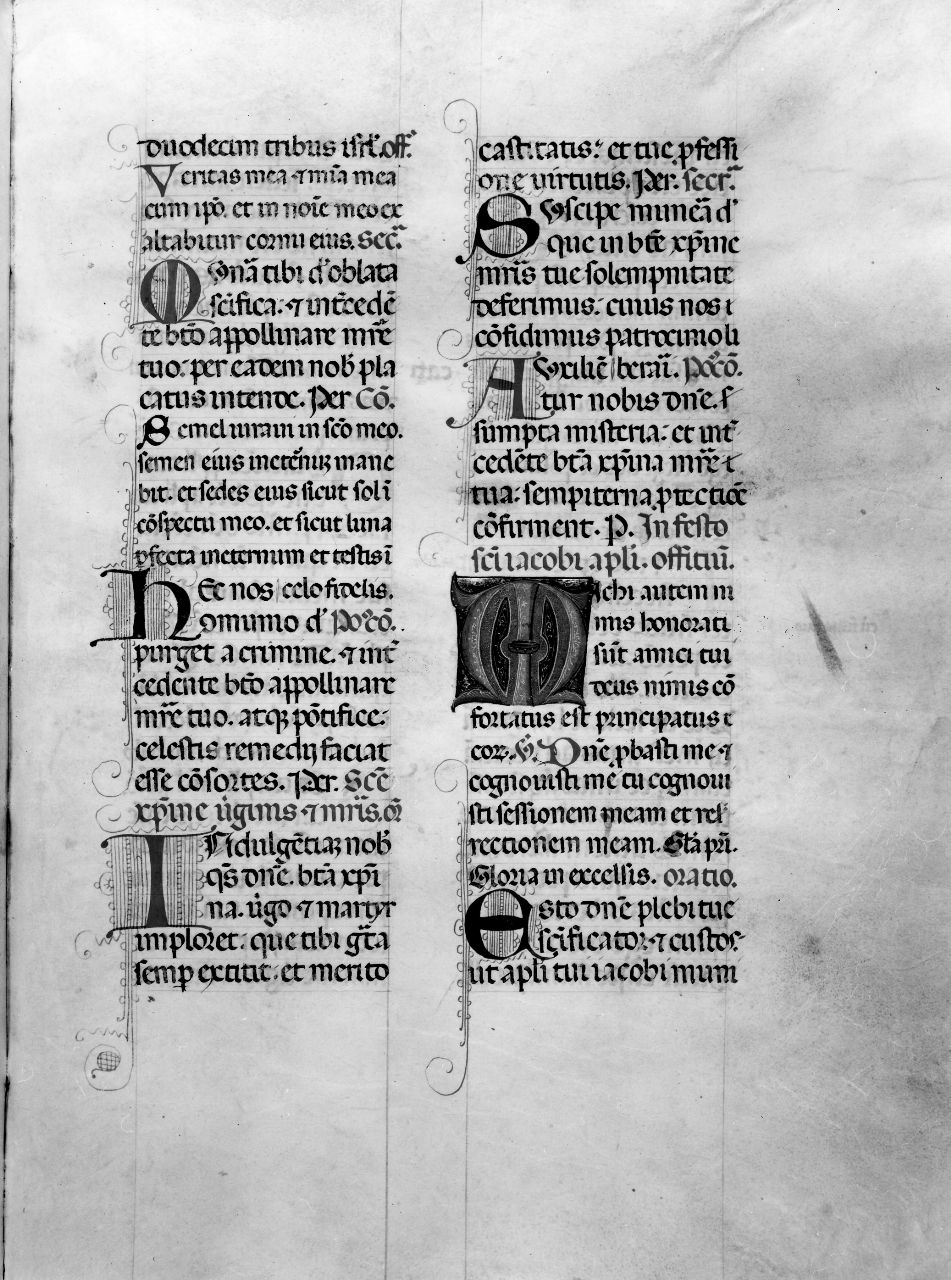 duodecim tribus isrl̃. off̃.
Veritas mea ⁊ mĩa mea
cum ip̃o. et in noĩe meo ex
altabitur cornu eius. Sec̃.
Mun̄a tibi d̃s oblata
sc̃ifica. ⁊ int̃cedẽ
te btõ appollinare mr̃e
tuo: per eadem nob̃ pla
catus intende. Per Cõ.
Semel iuraui in sc̃o meo.
semen eius inet̃nuʒ mane
bit. et sedes eius sicut sol ĩ
cõspectu meo. et sicut luna
ꝑfecta ineternum et testis ĩ
hEc nos celo fidelis.
omunio d̃s Poꝰcõ.
purget a crimine. ⁊ int̃
cedente btõ appollinare
mr̃e tuo. atqʒ põtifice:
celestis remedij faciat
esse cõsortes. Per. Sc̃e
xp̃ine ũginis ⁊ mr̃is. or̃
INdulgẽtiaʒ nob̃
q̃s dñe. bt̃a xp̃i
na. ũgo ⁊ martyr
imploret: que tibi gr̃ta
semꝑ extitit: et merito
castitatis: et tue ꝓfessi
one uirtutis. Per. secr̃.
SUscipe munẽa d̃s
que in bt̃e xp̃ine
mr̃is tue solempnitate
deferimus: cuius nos ⁊
cõfidimus patrocinio li
AUxiliẽ berari. Poꝰcõ.
tur nobis dñe. s
sumpta misteria: et int̃
cedẽte bt̃a xp̃ina mr̃e
tua: sempiterna ꝓtectiõe
cõfirment. P. In festo
sc̃i iacobi apli. offitiũ.
Michi autem ni
mis honorati
sũt amici tui
deus nimis cõ
fortatus est principatus e
oꝝ. ℣. Dñe ꝓbasti me ⁊
cognouisti mẽ tu cognoui
sti sessionem meam et res̃
rectionem meam. Gl̃a pr̃i.
Gloria in excelsis. oratio.
Esto dñe plebi tue
sc̃ificator ⁊ custos:
ut apli tui iacobi muni